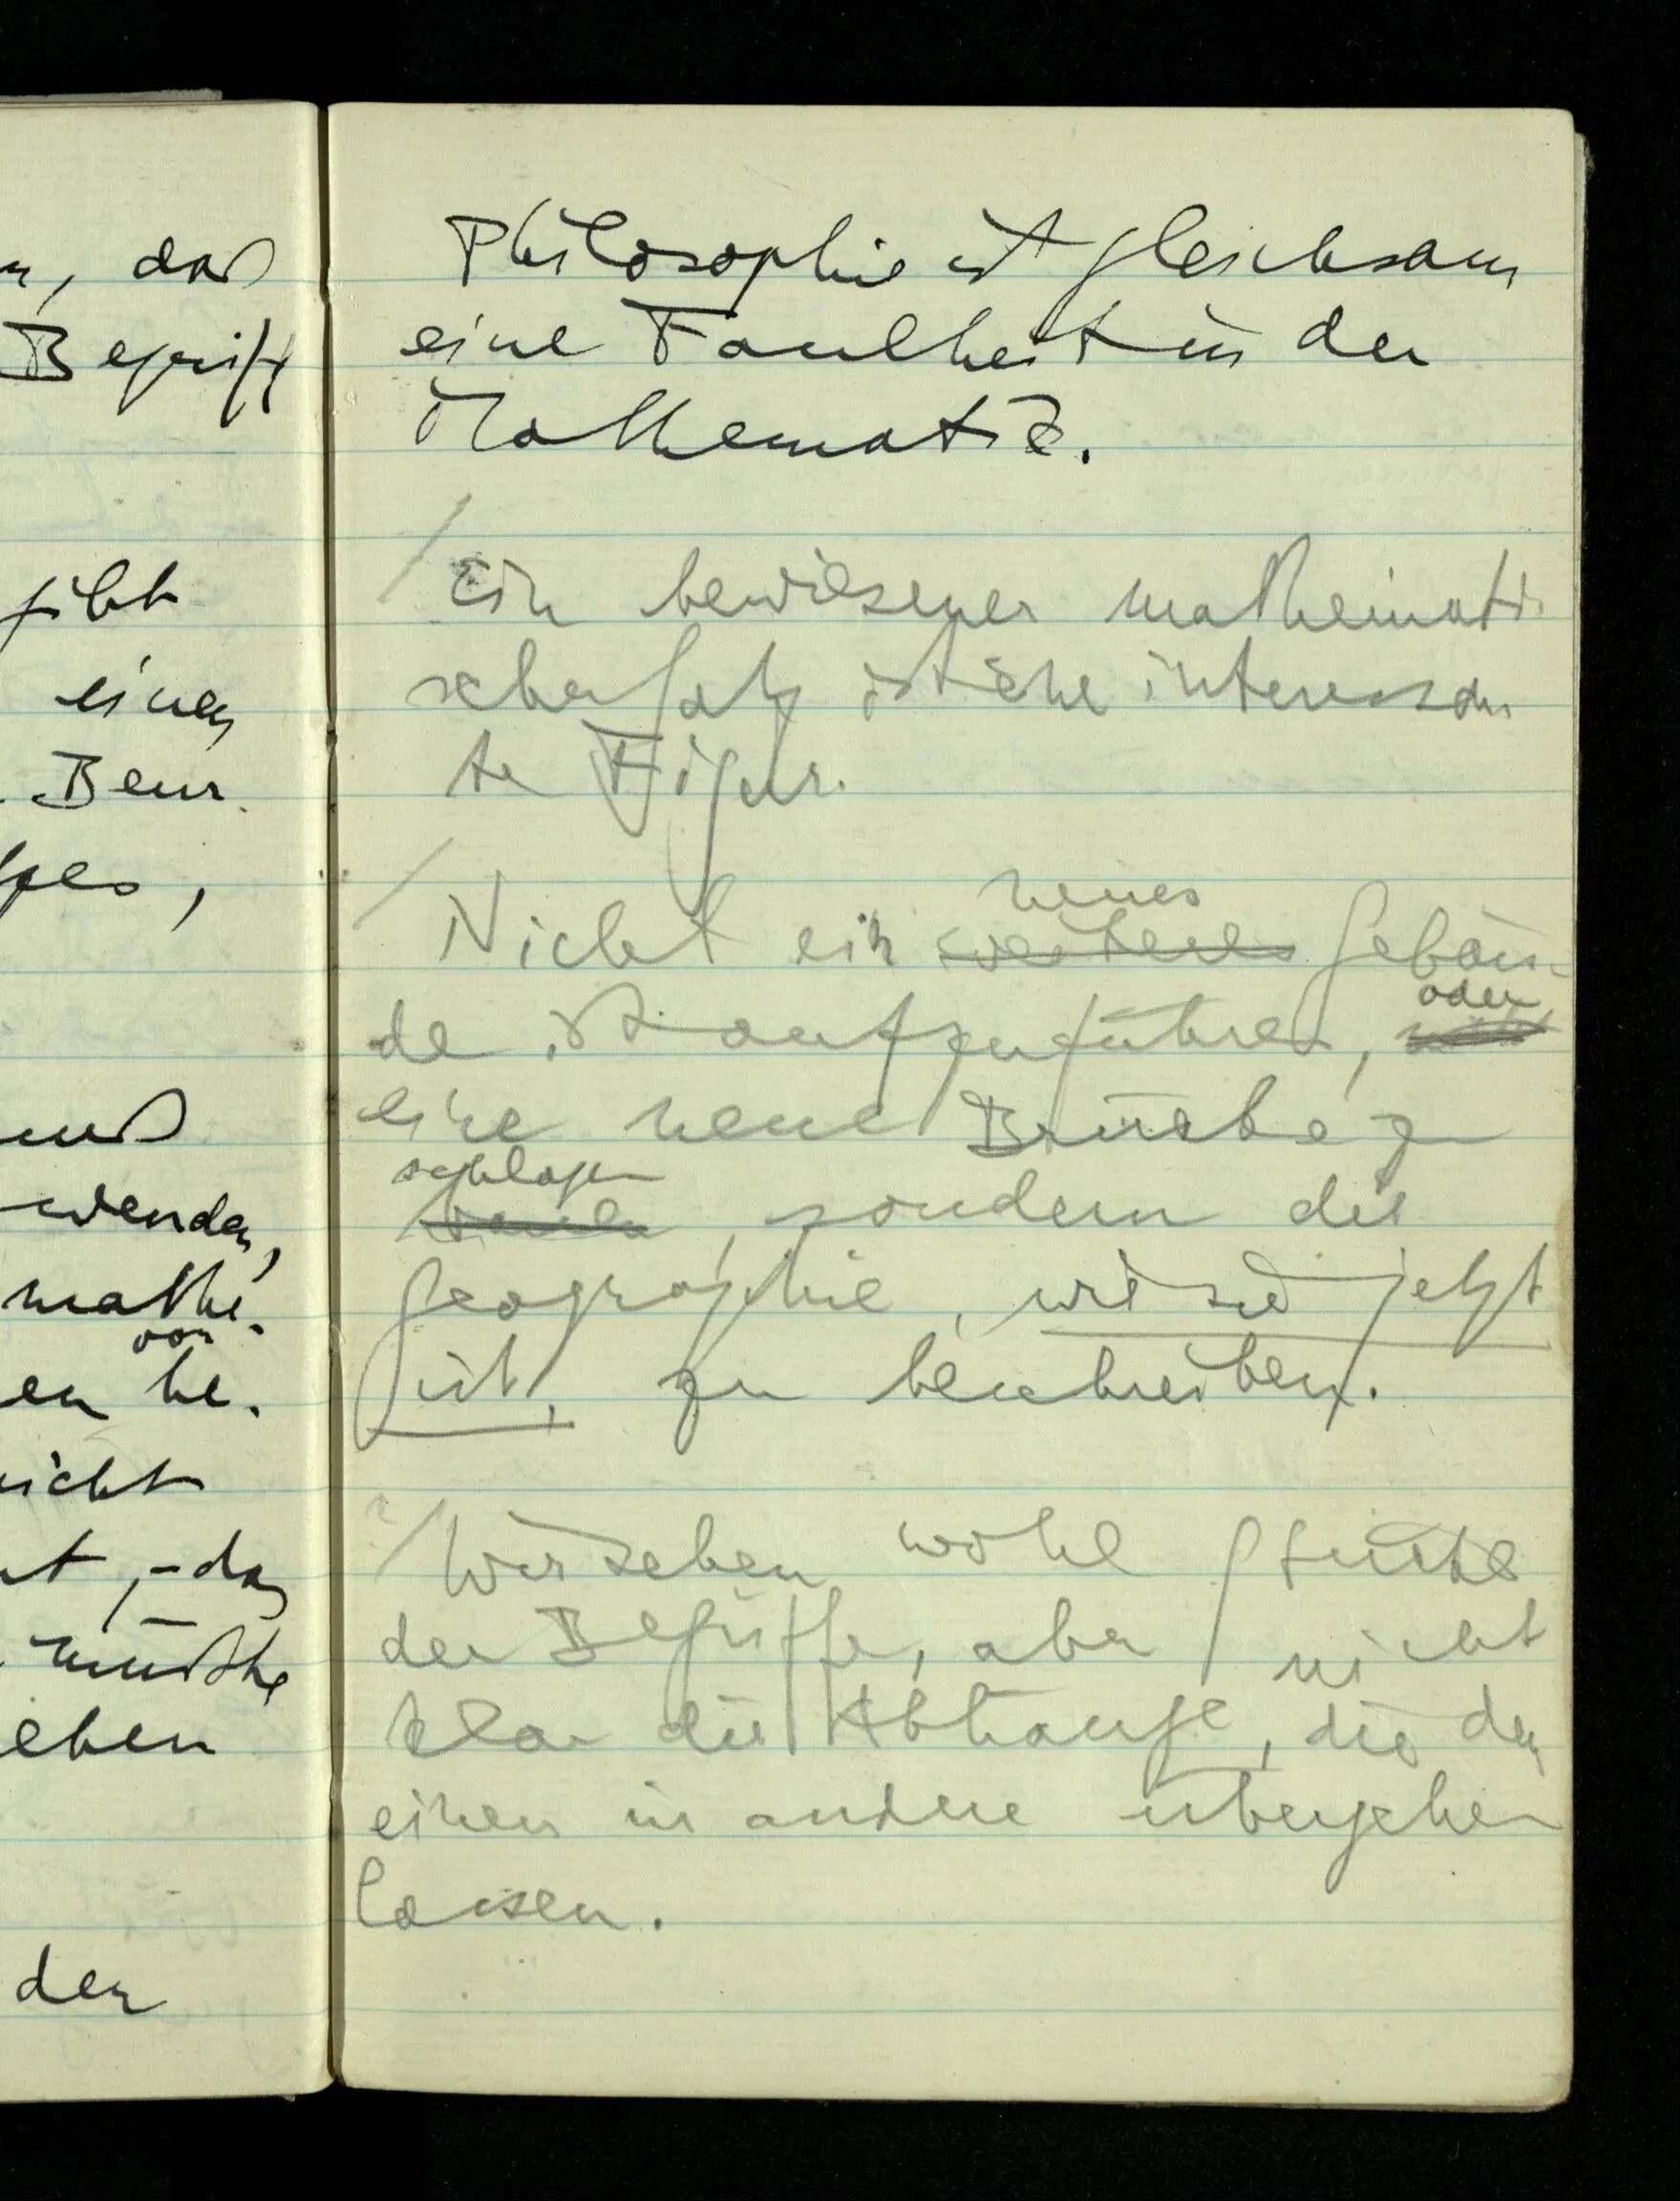 n, daß
Begriff
gibt
einen
Bew.
muß
wenden,
mathe-
von
en be-
nicht
t, – das
müßte
eben
der
Philosophie ist gleichsam
eine Faulheit in der
Mathematik.
/ Ein bewiesener mathemati
scher Satz ist eine interessan
te Figur.
neues
/ Nicht ein weiteres Gebäu-
oder
de ist aufzuführen,
eine neue Brücke zu
schlagen
bauen, sondern die
Geographie, wie sie jetzt
ist, zu beschreiben.
/ Wir sehen wohl Stücke
der Begriffe, aber nicht
klar die Abhänge, die den
einen in andere übergehen
lassen.